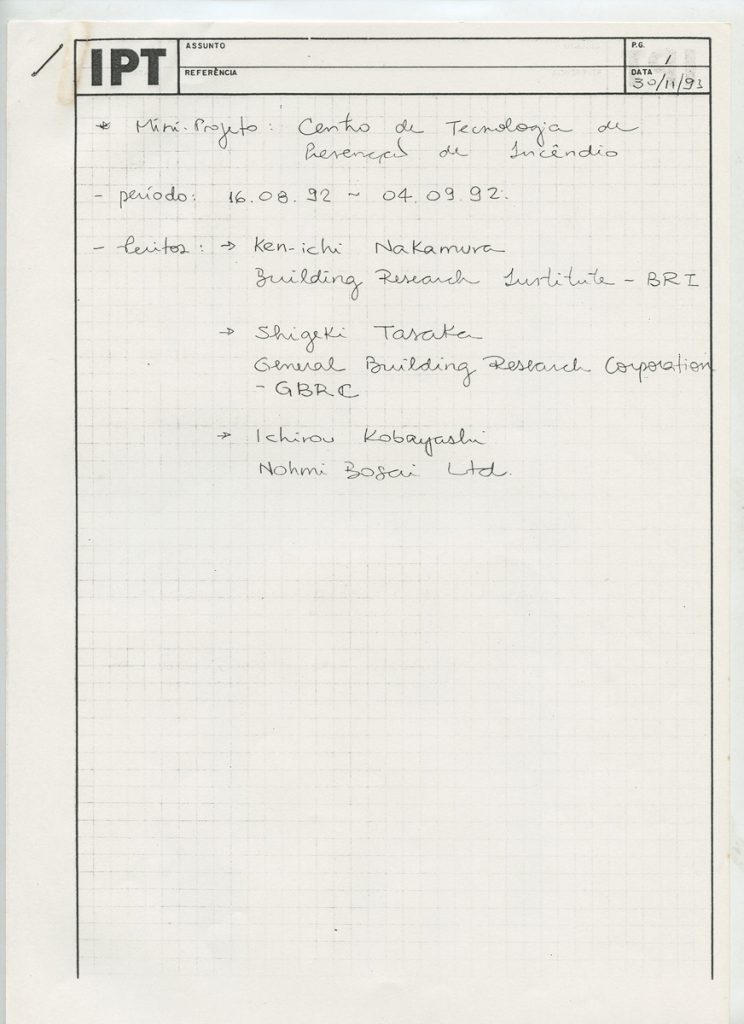 IPT
ASSUNTO
REFERÊNCIA
P.G. 1
DATA 30/11/93
* Mini-Projeto: Centro de Tecnologia de
Prevenção de Incêndio
- período: 16.08.92 ~ 04.09.92.
- Peritos: → Ken-ichi Nakamura
Building Research Institute - BRI
→ Shigeki Tasaka
General Building Research Corporation
- GBRC
→ Ichirou Kobayashi
Nohmi Bosai Ltd.